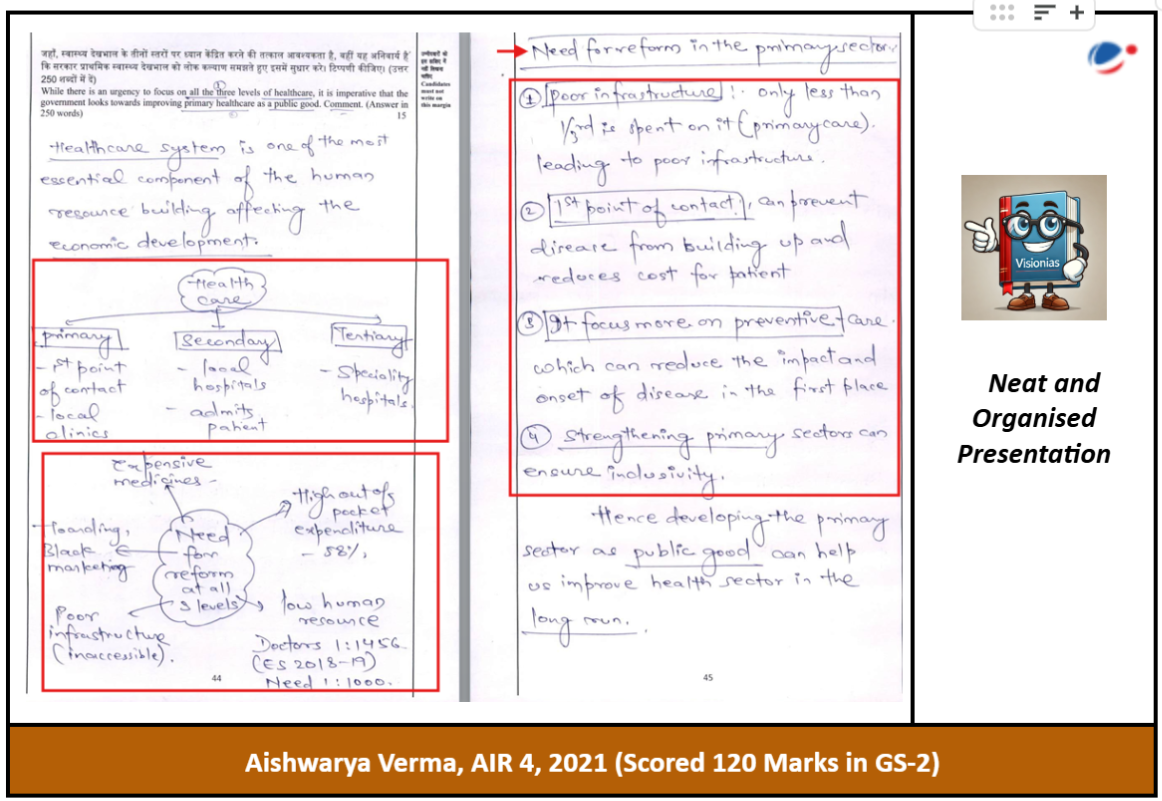 जहाँ, स्वास्थ्य देखभाल के तीनों स्तरों पर ध्यान केंद्रित करने की तत्काल आवश्यकता है, वहीं यह अनिवार्य है
कि सरकार प्राथमिक स्वास्थ्य देखभाल को लोक कल्याण समझते हुए इसमें सुधार करे। टिप्पणी कीजिए। (उत्तर
250 शब्दों में दें)
While there is an urgency to focus on all the three levels of healthcare, it is imperative that the
government looks towards improving primary healthcare as a public good. Comment. (Answer in
250 words) 15
Candidates
must not
write on
this margin
Healthcare system is one of the most
essential component of the human
resource building affecting the
economic development.
Health
care
primary
- 1st point
of contact
- local
clinics
Seconday
- local
hospitals
- admits
patient
Tertiary
- Speciality
hospitals.
expensive
medicines -
High out of
pocket
expenditure
- 58%,
Hoarding,
Black
marketing
Need
for
reform
at all
3 levels
Poor
infrastructure
(inaccessible).
low human
resource
Doctors 1:1456
(ES 2018-19)
Need 1:1000.
44
Need for reform in the primary sector.
1 Poor infrastructure :- only less than
1/3rd is spent on it (primary care).
leading to poor infrastructure.
2 1st point of contact, can prevent
disease from building up and
reduces cost for patient
3 It focus more on preventive care
which can reduce the impact and
onset of disease in the first place
4 Strengthening primary sectors can
ensure inclusivity.
Hence developing the primary
sector as public good can help
us improve health sector in the
long run.
45
Visionias
Neat and
Organised
Presentation
Aishwarya Verma, AIR 4, 2021 (Scored 120 Marks in GS-2)